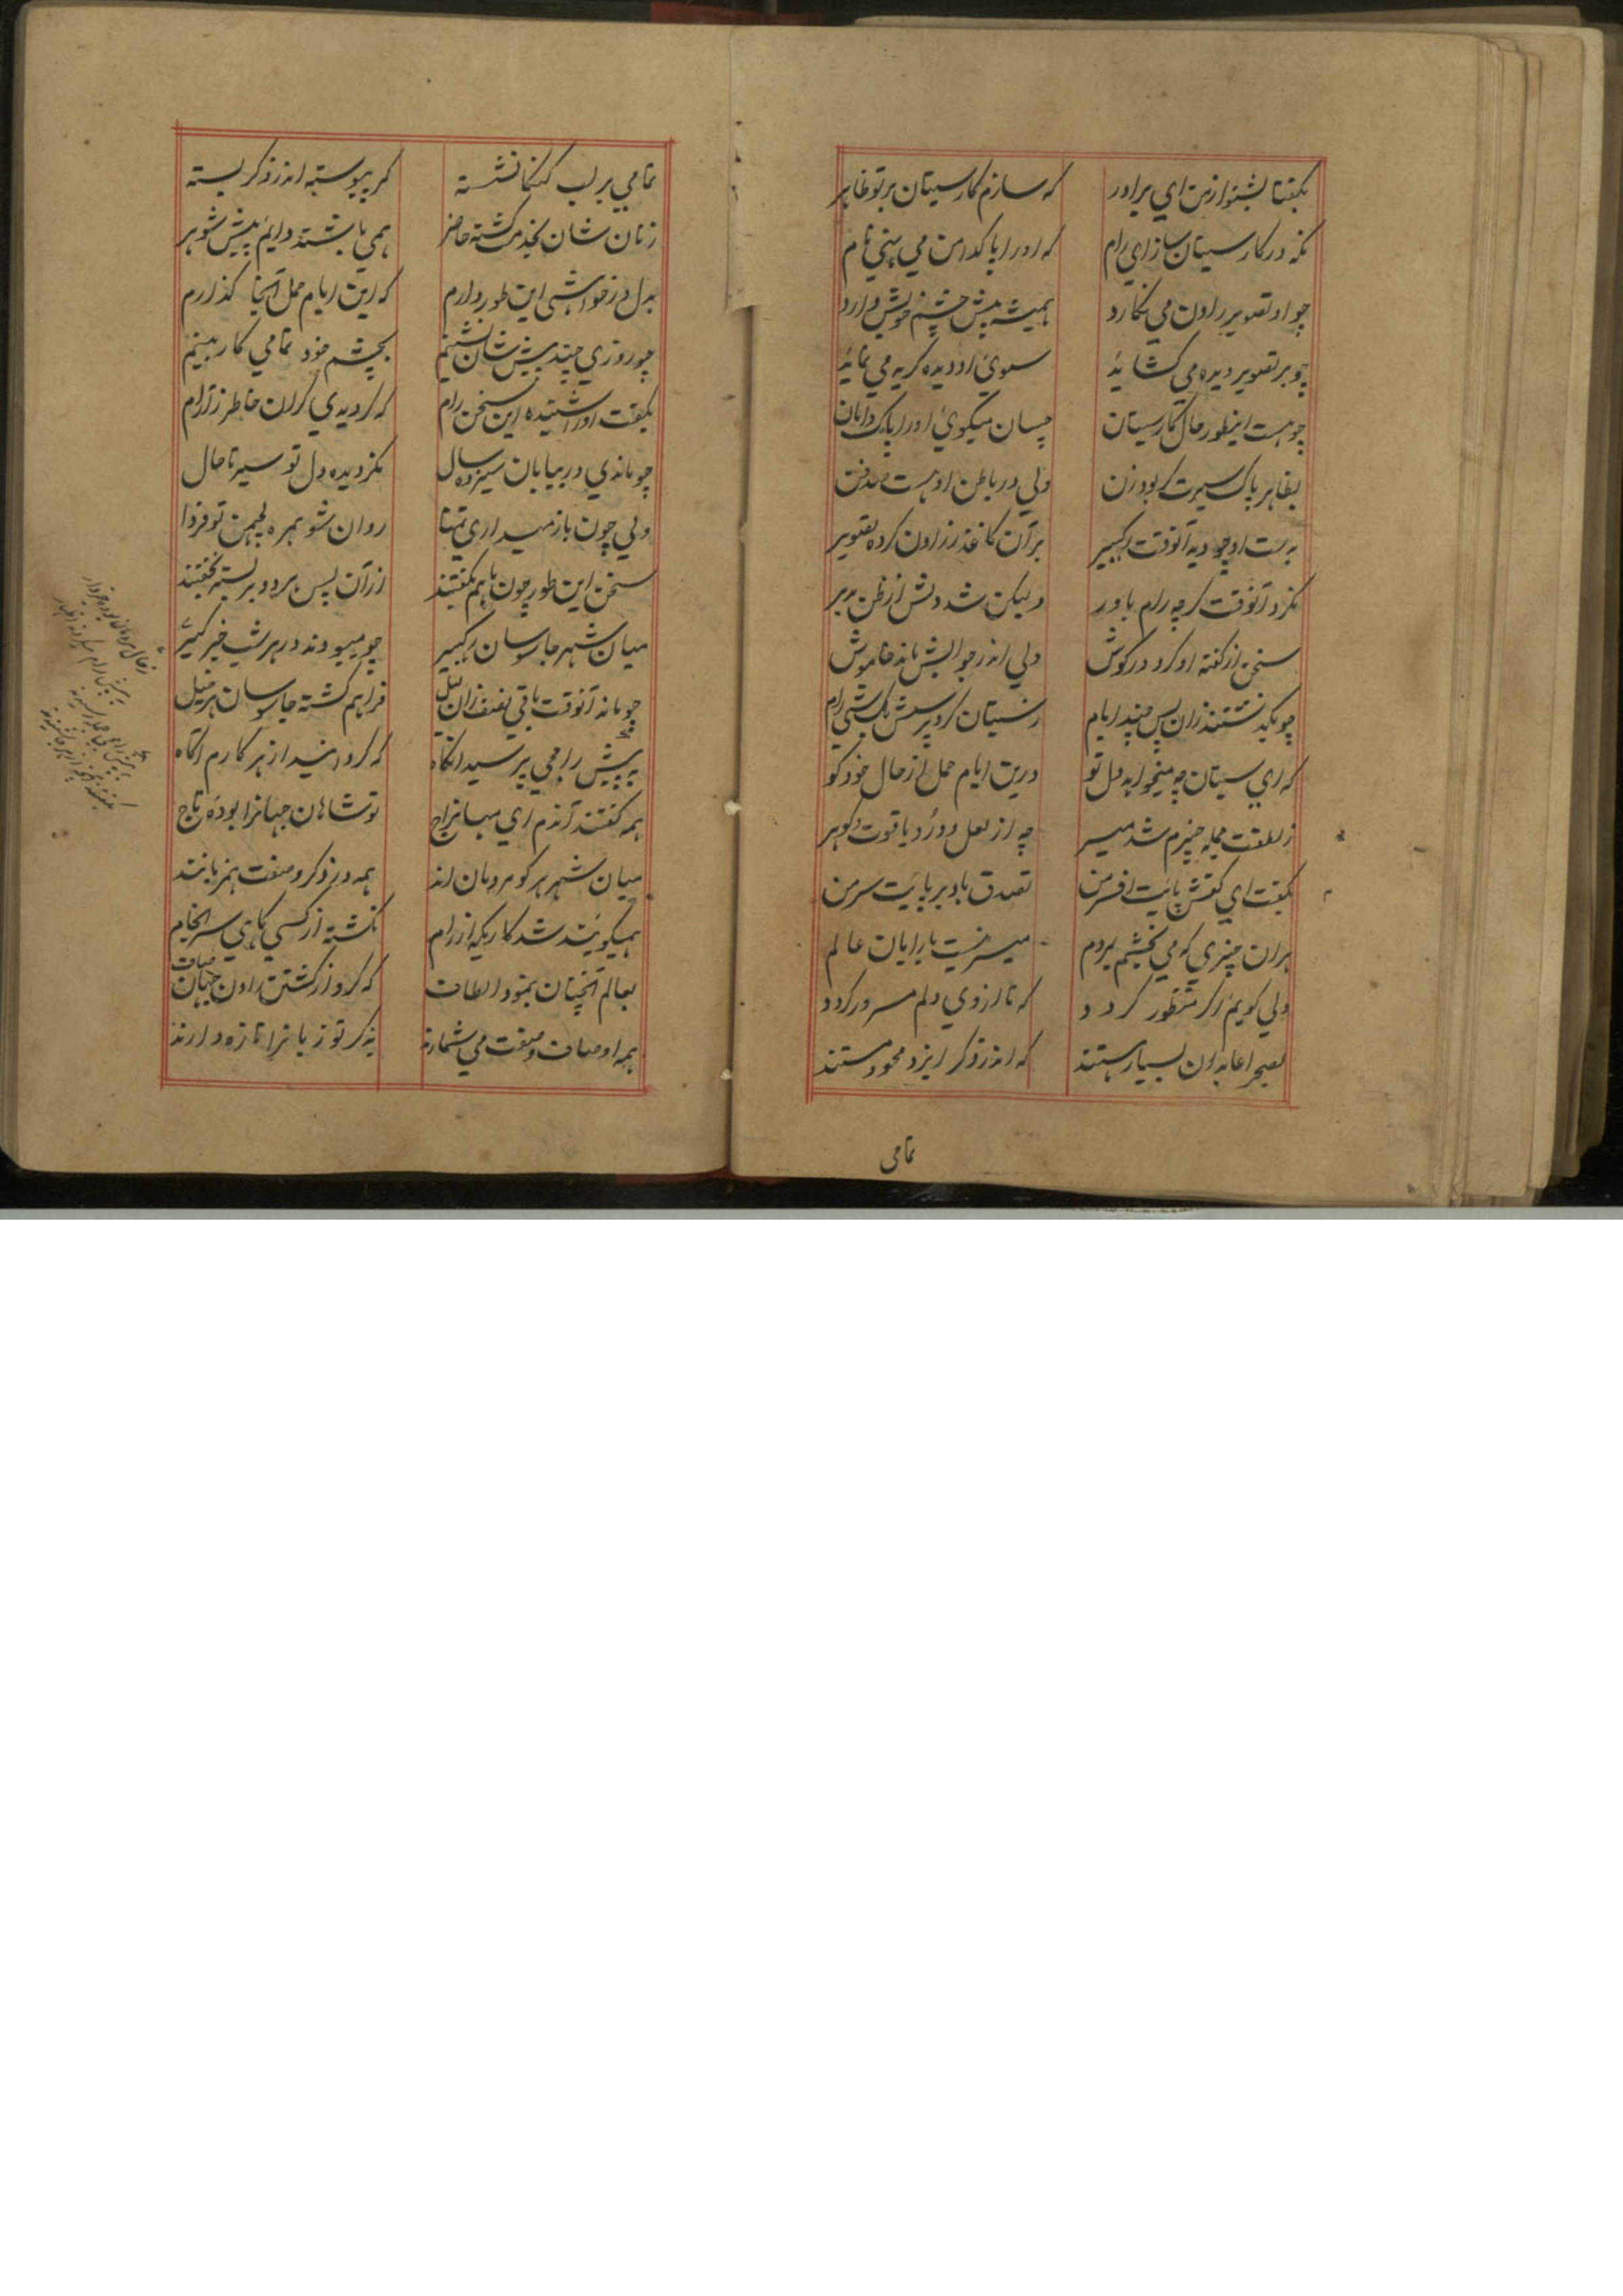 بگفتا بشنو از من ای برادر که سازم کار سیتان بر تو ظاهر
نگه در کار سیتان ساز ای رام که او را پاکدامن می بنی نام
چو او تصویر راون می نگارد همیشه پیش چشم خویش دارد
چو بر تصویر دیده می کشاید سوی او دیده گریه می نماید
چو هست اینطور حال کار سیتان چسان میگوئ او را پاک دامان
بظاهر پاک سیرت گر بود زن ولی در باطن او هست
بدست او چو دید آنوقت برآن کاغذ ز راون کرده تصویر
نکرد آنوقت گرچه رام باور ولیکن شد دلش از ظن
سخن از گفته او کرد در گوش ولی اندر جوابش ماند خاموش
چو بگذشتند زان پس چند ایام ز سیتان کرد پرسش یک شبی رام
که ای سیتان چه میخواهد دل تو درین ایام حمل از حال خود گو
ز لطفت جمله چیزم شد میسر چه از لعل و زر و یاقوت و گوهر
بگفت ای کفش پایت افسر من تصدق باد بر پایت سر من
هر ان چیزی که می بخشم بمردم میسر نیست با رایان عالم
ولی گویم اگر منظور گردد که تا از وی دلم مسرور گردد
بصحرا عابدان بسیار هستند که اندر ذکر ایزد محو هستند
تمامی
تمامی بر لب گنگا نشسته کمر پیوسته اندر ذکر بسته
زنان شان بخدمت گشته حاضر همی باشند دایم پیش شوهر
بدل در خواهشی این طور دارم که این ایام حمل آنجا گذارم
چو روزی چند پیش شان نشینم بچشم خود تمامی کار بینم
بگفت او را شنیده این سخن رام که گردیدی گران خاطر ز آرام
چو ماندی در بیابان سیزده سال نگردیده دل تو سیر تا حال
ولی چون باز میداری تمنا روان شو همره لچهمن تو فردا
سخن این طور چون باهم بگفتند ازآن پس هر دو بر بستر بخفتند
میان شهر جاسوسان چو میبودند در هر شب خبر گیر
چو مانده آنوقت باقی نصف زان لیل فراهم گشته جاسوسان هر خیل
به پیش رامجی پرسید انگاه که کردانید از هر کارم آگاه
همه گفتند آندم ای مهاراج تو شاهان جهانرا بوده تاج
میان شهر هر کو مردمان اند همه در ذکر و صفت همزبانند
همیگویند شد کاریکه از رام نگشته از کسی گاهی سرانجام
بعالم آنچنان بنمود الطاف که کرد از کشتن راون جهان صاف
همه اوصاف و صفت می شمارند بذکر تو زبانرا تازه دارند